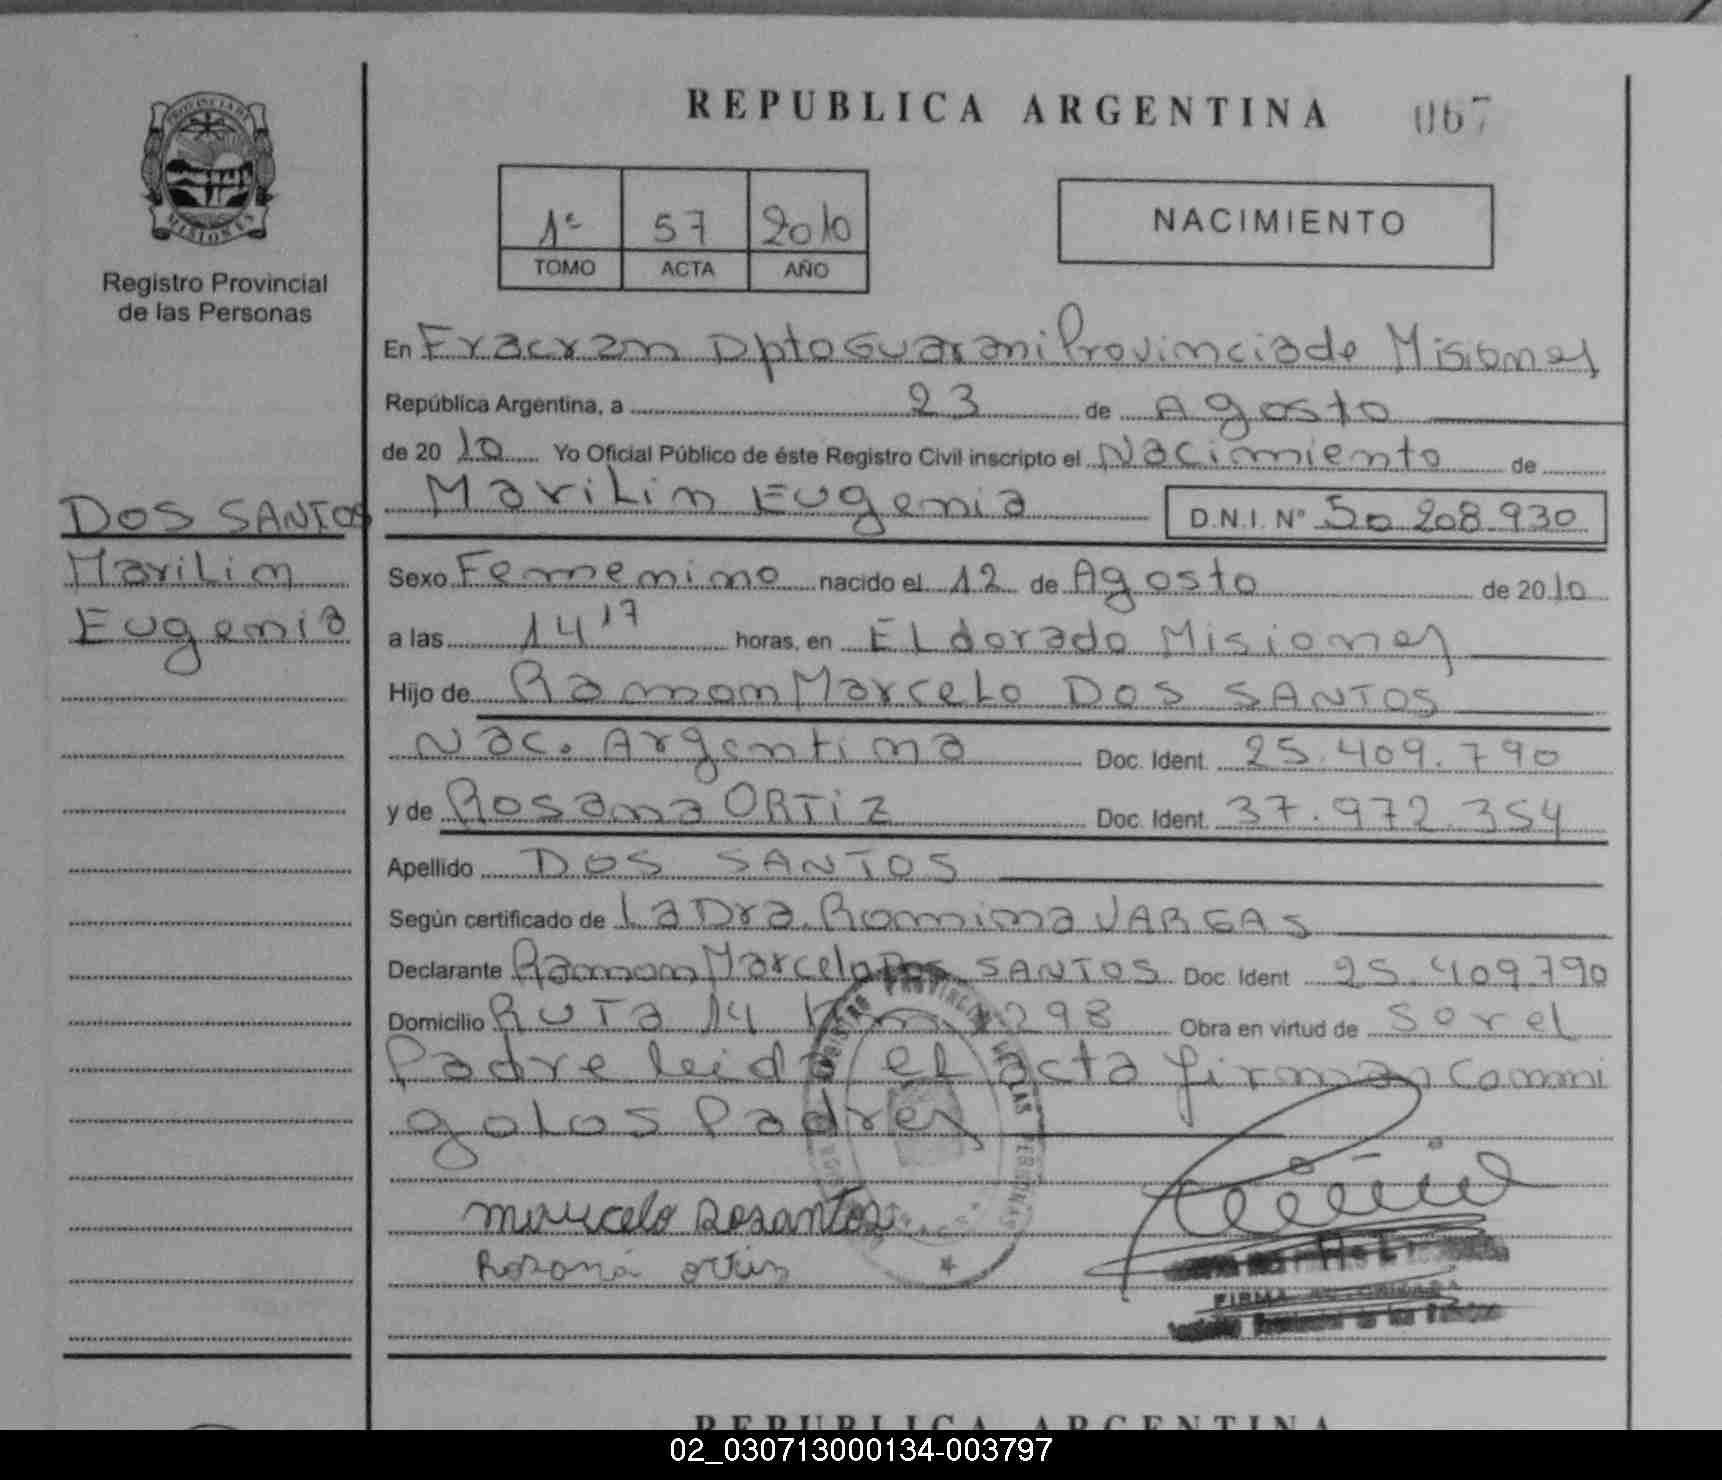 REPUBLICA ARGENTINA 067
PROVINCIA DE MISIONES
Registro Provincial
de las Personas
1º 57 2010
TOMO ACTA AÑO
NACIMIENTO
En Fracran Dpto Guarani Provincia de Misiones
República Argentina, a 23 de Agosto
de 20 10 Yo Oficial Público de éste Registro Civil inscripto el Nacimiento de
DOS SANTOS
Marilin
Eugenia
Marilin Eugenia D.N.I. Nº 50 208.930
Sexo Femenino nacido el 12 de Agosto de 2010
a las 14 17 horas, en Eldorado Misiones
Hijo de Ramon Marcelo DOS SANTOS
Nac. Argentina Doc. Ident. 25.409.790
y de Rosana ORTIZ Doc. Ident. 37.972.354
Apellido DOS SANTOS
Según certificado de La Dra. Romina VARGAS
Declarante Ramon Marcelo Dos SANTOS Doc. Ident 25.409.790
Domicilio RUTA 14 Km 1298 Obra en virtud de Ser el
Padre leida el acta firman conmi
go los Padres
marcelo Dosantos
Rosana ortiz
REPUBLICA ARGENTINA
02_030713000134-003797